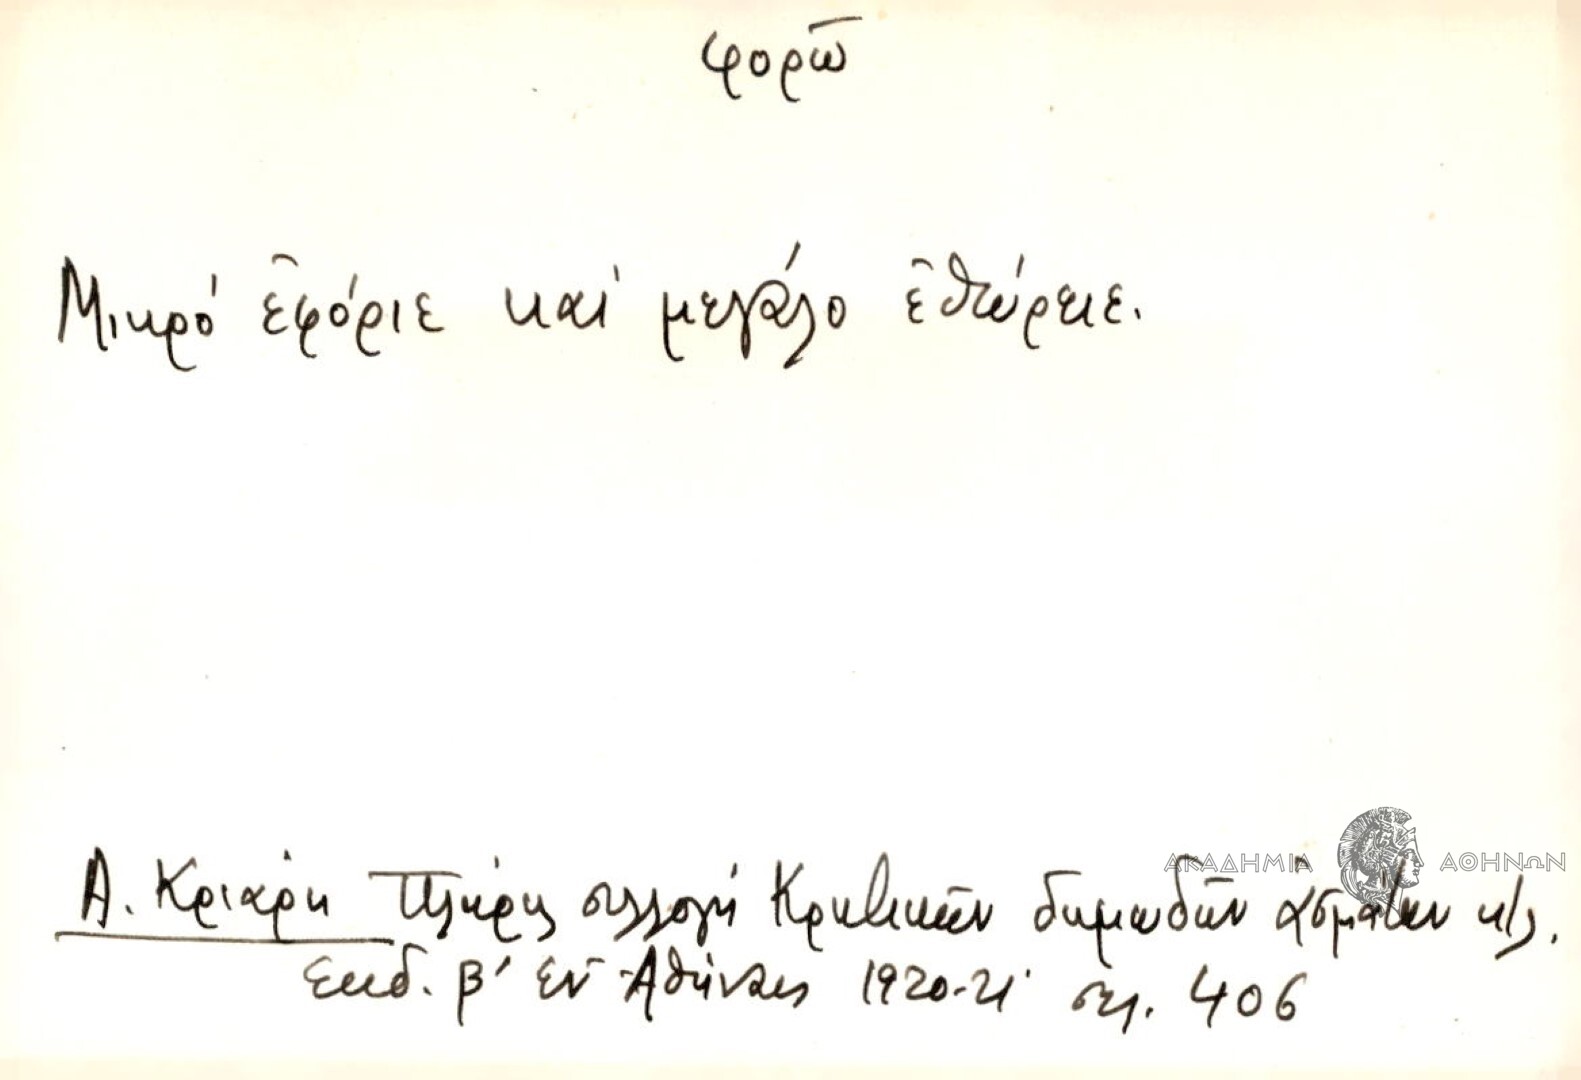 φορῶ
Μικρό ἐφόριε καί μεγάλο ἐθώρειε.
ΑΚΑΔΗΜΙΑ ΑΘΗΝΩΝ
Α. Κριάρη Πλήρης συλλογή Κρητικῶν δημωδῶν ἀσμάτων κτλ.
ἐκδ. β' ἐν Ἀθήναις 1920-21 σελ. 406